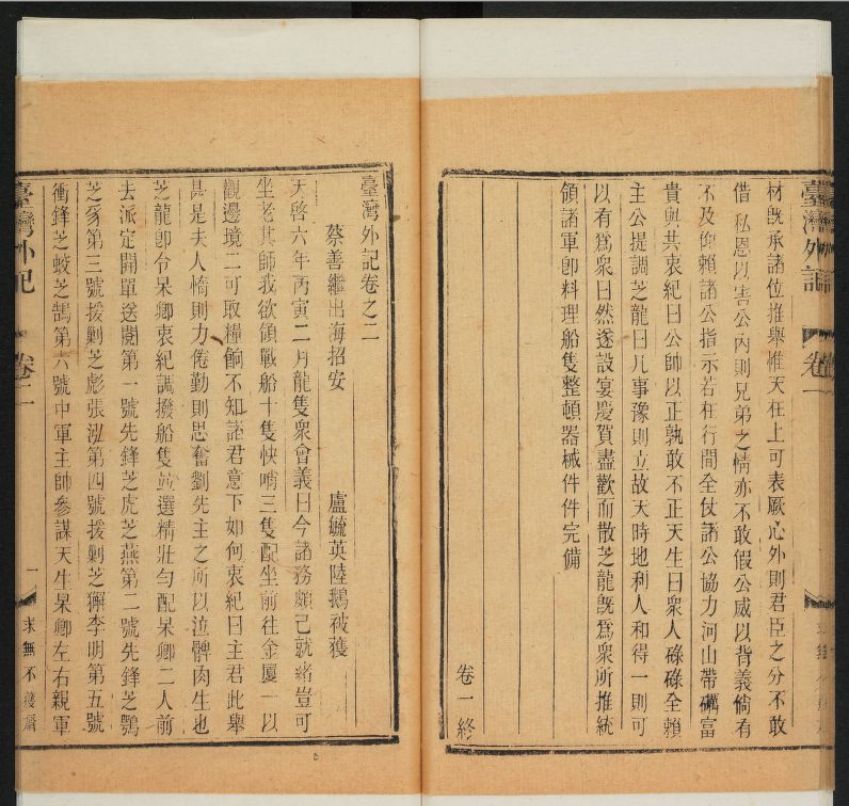 臺灣外記
卷一
材既承諸位推舉惟天在上可表厥心外則君臣之分不敢
借私恩以害公內則兄弟之情亦不敢假公威以背義倘有
不及仰賴諸公指示若在行間全仗諸公協力河山帶礪富
貴與共衷紀曰公帥以正孰敢不正天生曰眾人碌碌全賴
主公提調芝龍曰凡事豫則立故天時地利人和得一則可
以有爲衆曰然遂設宴慶賀盡歡而散芝龍旣爲衆所推統
領諸軍卽料理船隻整頓器械件件完備
卷一終
臺灣外記卷之二
蔡善繼出海招安
盧毓英陸鵝被獲
天啓六年丙寅二月龍隻衆會義曰今諸務頗已就緒豈可
坐老其師我欲領戰船十隻快哨三隻配坐前往金厦一以
觀邊境二可取糧餉不知諸君意下如何衷紀曰主君此舉
甚是夫人惰則力倦勤則思奮劉先主之所以泣髀肉生也
芝龍卽令杲卿衷紀調撥船隻並選精壯勻配杲卿二人前
去派定開單送閱第一號先鋒芝虎芝燕第二號先鋒芝鶚
芝豸第三號援剿芝彪張泓第四號援剿芝獬李明第五號
衝鋒芝蛟芝鵠第六號中軍主帥參謀天生杲卿左右親軍
臺灣外記
卷二
一
求無不獲齋